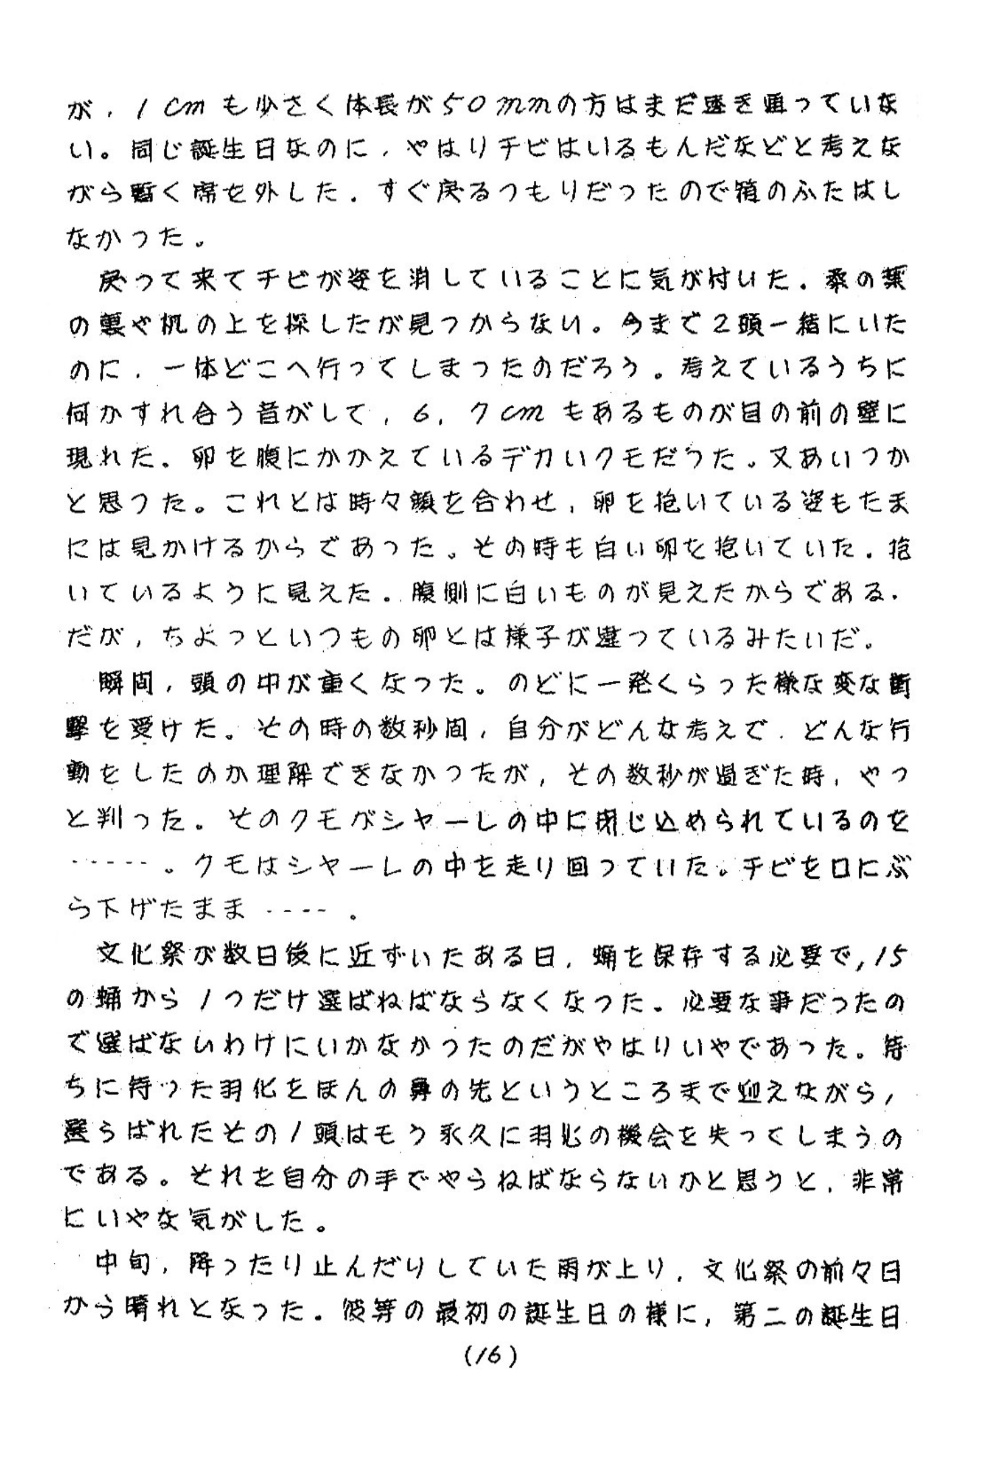 が，1cmも少さく体長が50mmの方はまだ透き通っていな
い。同じ誕生日なのに，やはりチビはいるもんだなどと考えな
がら暫く席を外した．すぐ戻るつもりだったので箱のふたはし
なかった。
戻って来てチビが姿を消していることに気が付いた．桑の葉
の裏や机の上を探したが見つからない。今まで2頭一緒にいた
のに，一体どこへ行ってしまったのだろう。考えているうちに
何かすれ合う音がして，6，7cmもあるものが目の前の壁に
現れた．卵を腹にかかえているデカいクモだった。又あいつか
と思った。これとは時々顔を合わせ，卵を抱いている姿もたま
には見かけるからであった。その時も白い卵を抱いていた．抱
いているように見えた．腹側に白いものが見えたからである．
だが，ちょっといつもの卵とは様子が違っているみたいだ。
瞬間，頭の中が重くなった。のどに一発くらった様な変な衝
撃を受けた。その時の数秒間，自分がどんな考えで．どんな行
動をしたのか理解できなかったが，その数秒が過ぎた時，やっ
と判った。そのクモがシャーレの中に閉じ込められているのを
-----。クモはシャーレの中を走り回っていた。チビを口にぶ
ら下げたまま----．
文化祭が数日後に近ずいたある日，蛹を保存する必要で，15
の蛹から1つだけ選ばねばならなくなった。必要な事だったの
で選ばないわけにいかなかったのだがやはりいやであった。待
ちに待った羽化をほんの鼻の先というところまで迎えながら，
選らばれたその1頭はもう永久に羽化の機会を失ってしまうの
である。それを自分の手でやらねばならないかと思うと，非常
にいやな気がした。
中旬，降ったり止んだりしていた雨が上り，文化祭の前々日
から晴れとなった．彼等の最初の誕生日の様に，第二の誕生日
(16)